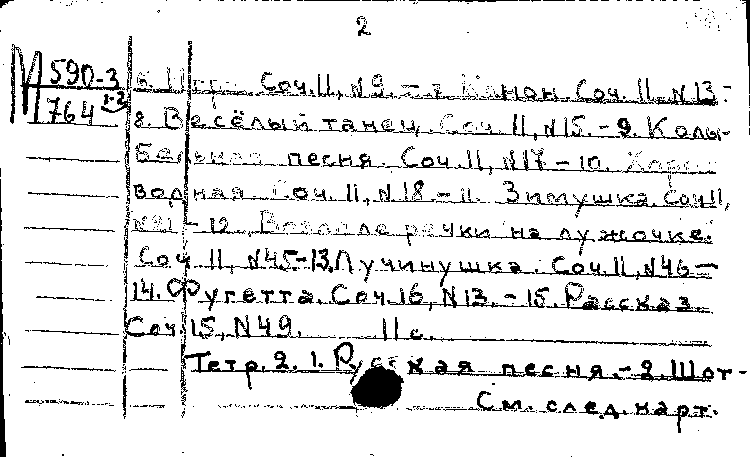 2
М 590-3
764 1-2
6. Соч. 11, №9. – 7. Канон. Соч. 11. №13. –
8. Весёлый танец. Соч. 11, №15. – 9. Колы-
бельная песня. Соч. 11, №17 – 10. Хоро-
водная. Соч. 11, №18 – 11. Зимушка. Соч. 11,
№21 – 12. Возле речки на лужочке.
Соч 11, №45 – 13. Лучинушка. Соч. 11, №46 –
14. Фугетта. Соч. 16, №13. – 15. Рассказ.
Соч. 15, №49. 11 с.
Тетр. 2. 1. Русская песня. – 2. Шот-
См. след. карт.